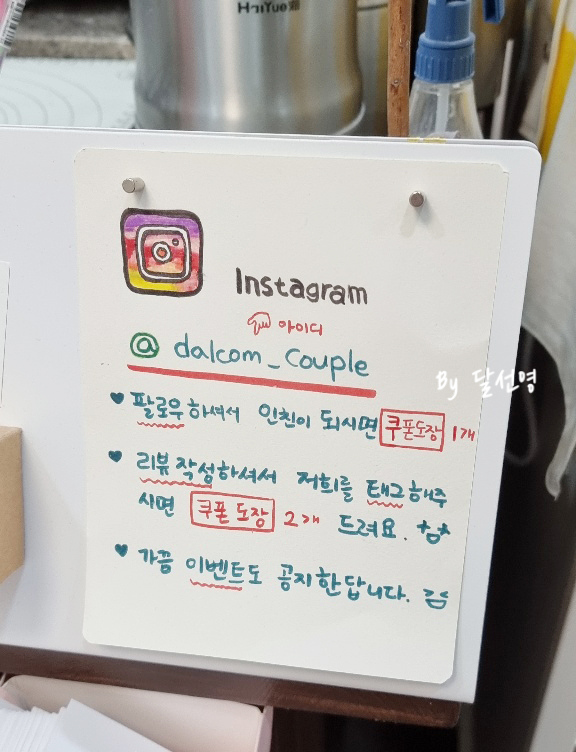 HaiYue
Instagram
아이디
@ dalcom_couple
By 달선영
♥ 팔로우하셔서 인친이 되시면 쿠폰도장 1개
♥ 리뷰작성하셔서 저희를 태그해주
시면 쿠폰 도장 2개 드려요.
♥ 가끔 이벤트도 공지한답니다.